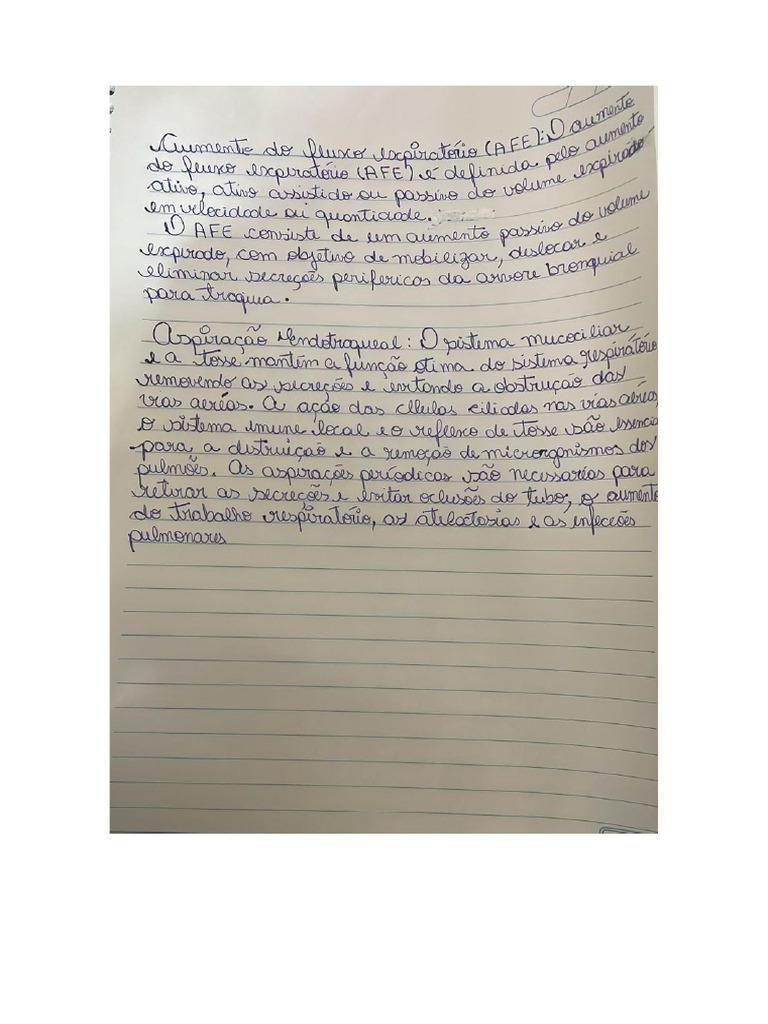 Aumento do fluxo expiratório (AFE): O aumento
do fluxo expiratório (AFE) é definida pelo aumento
ativo, ativo assistido ou passivo do volume expirado
em velocidade ou quantidade.
O AFE consiste de um aumento passivo do volume
expirado, com objetivo de mobilizar, deslocar e
eliminar secreções perifericas da arvore bronquial
para traqueia.
Aspiração endotraqueal: O sistema mucociliar
e a tosse mantém a função ótima do sistema respiratório
removendo as secreções e evitando a obstrução das
vias aeréas. A ação das células ciliadas nas vias aeréas,
o sistema imune local e o reflexo de tosse são essencia
para, a distruição e a remoção de microrganismos dos
pulmões. As aspirações períodicas são necessarias para
retirar as secreções e evitar oclusões do tubo, o aumento
do trabalho respiratório, as atelectasias e as infecções
pulmonares